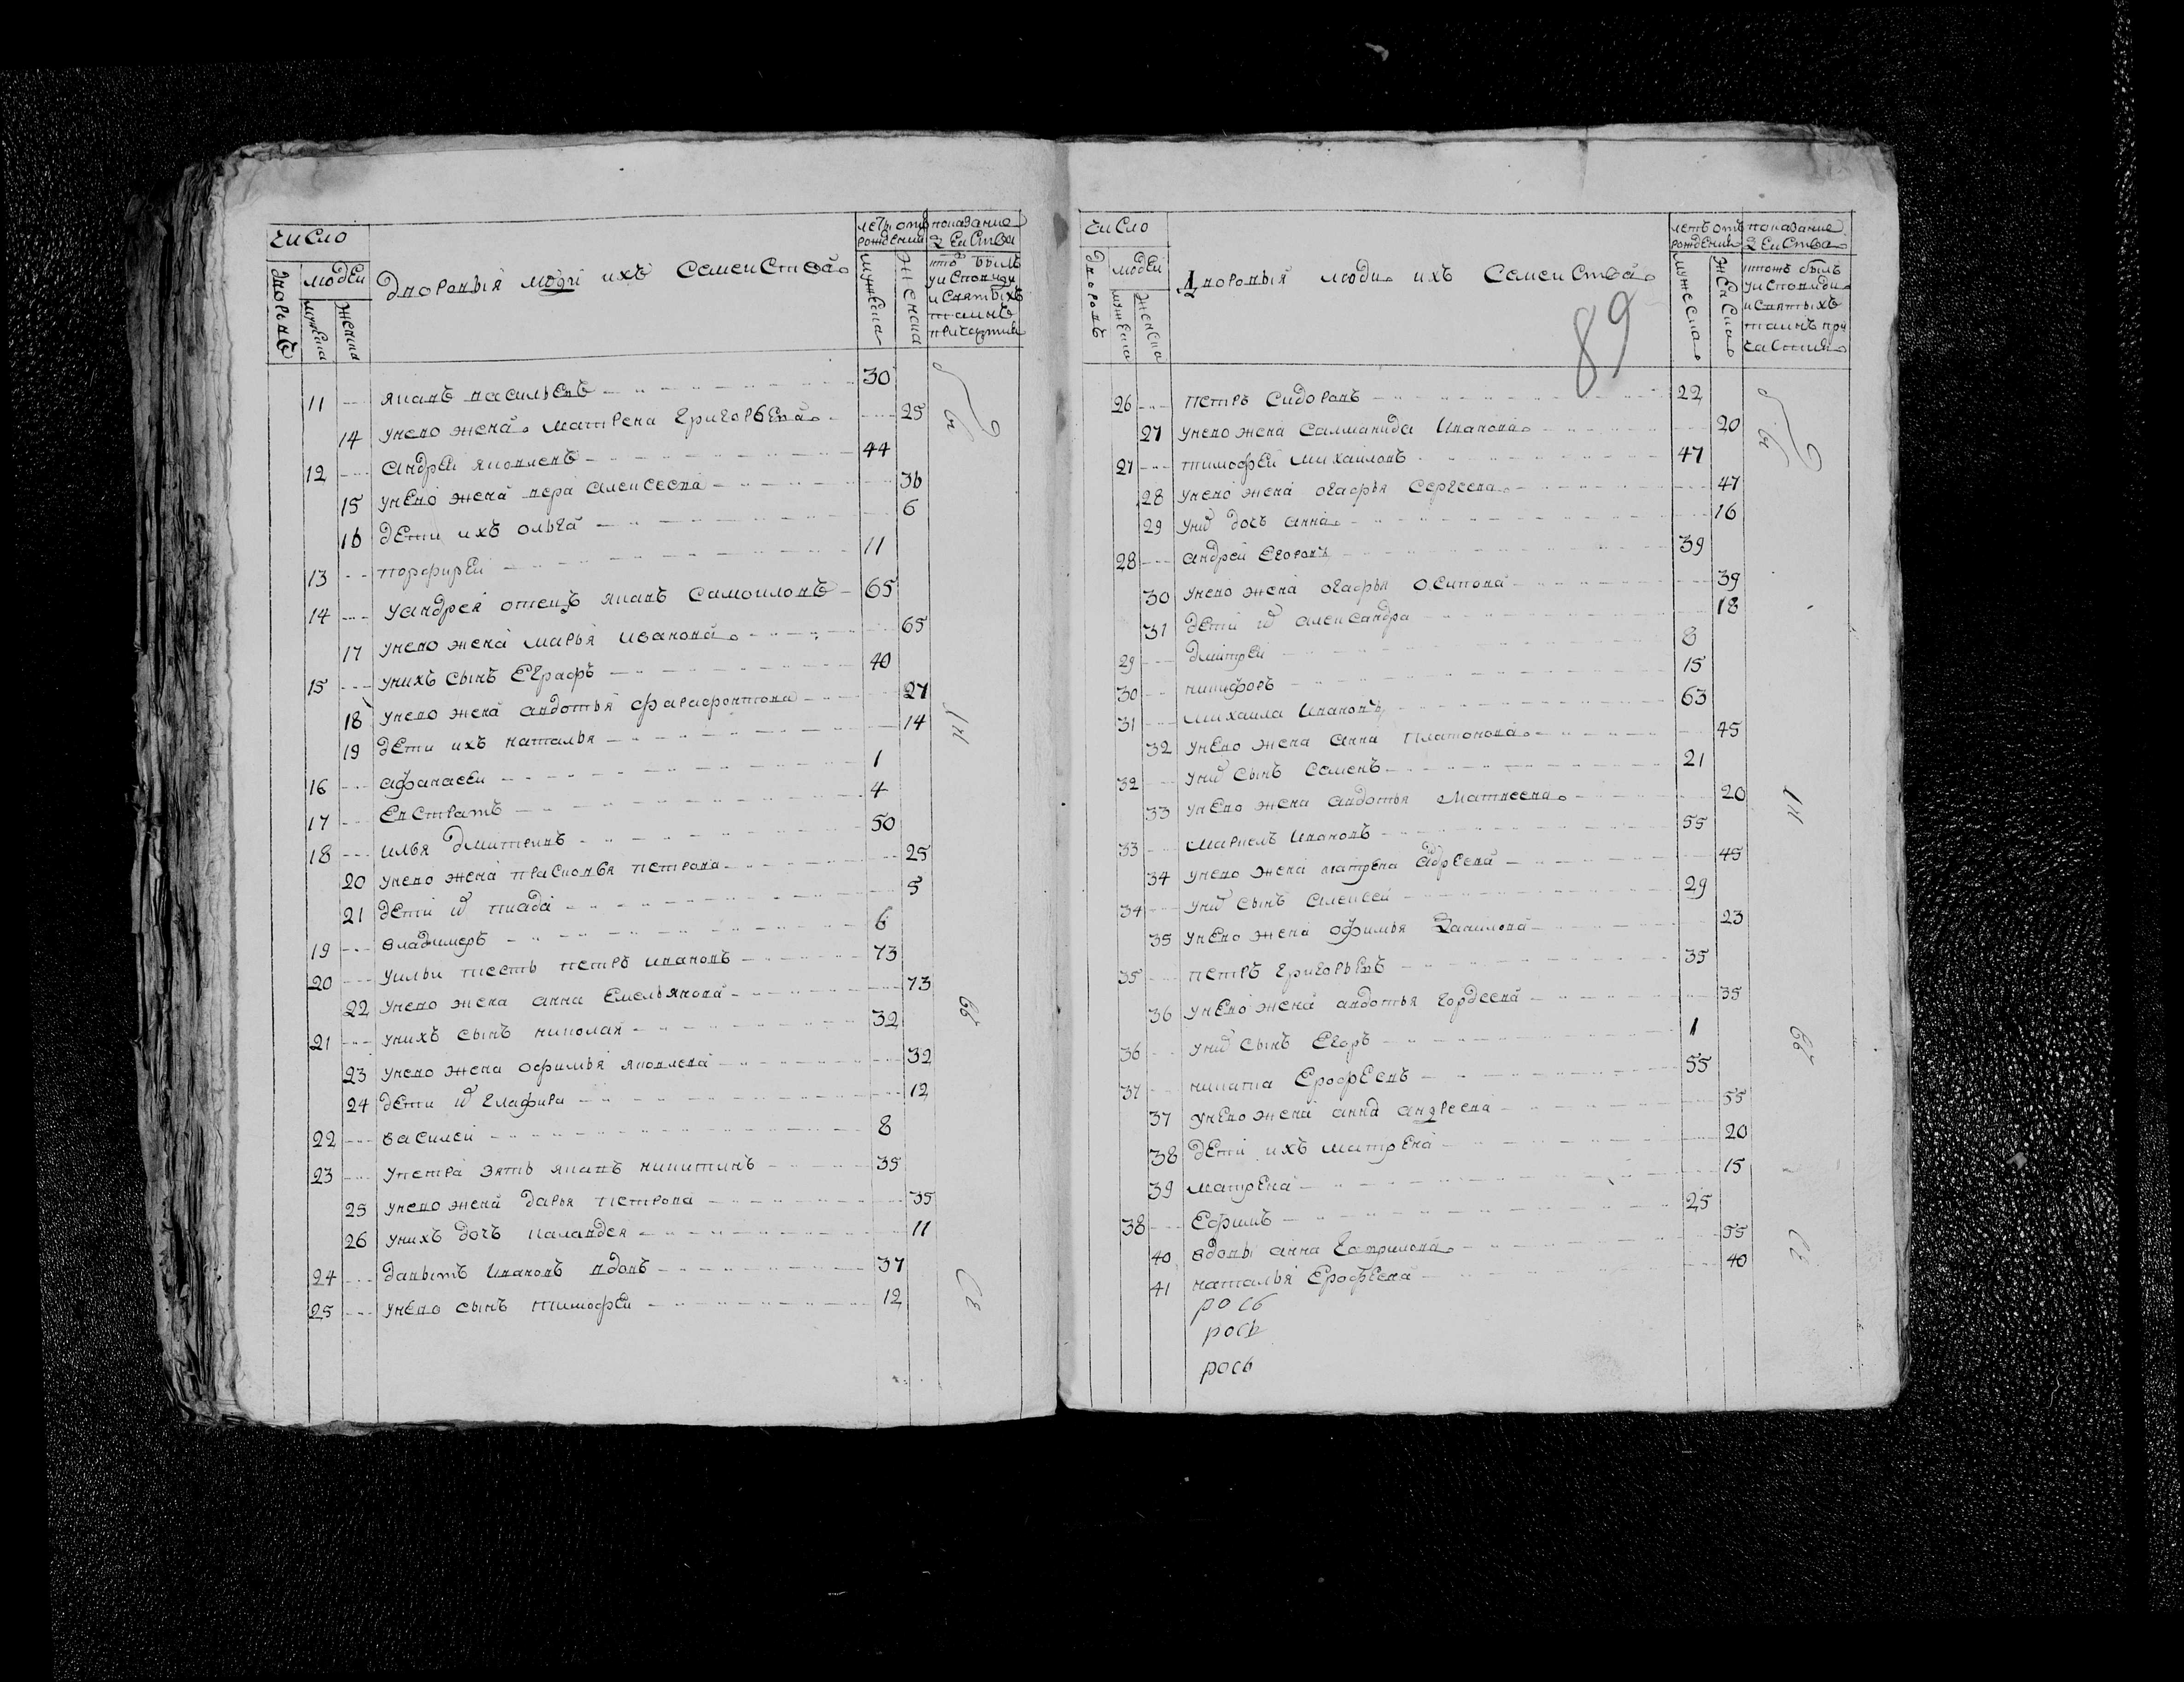 число
дворовъ
людей
мужеска
женска
дворовыя люди ихъ семейства
летъ отъ рождения
мужеска
женска
показание действа
кто былъ у исповеди и святыхъ таинъ причастия
30
11 яковъ васильевъ
14 у нево жена матрена григорьева 25
12 андрей яковлевъ 44
15 у нево жена вера алексеева 36
16 дети ихъ ольга 6
13 порфирей 11
14 у андрея отецъ яковъ самоиловъ 65
17 у нево жена марья иванова 65
15 у нихъ сынъ еграфъ 40
18 у нево жена авдотья фарафонтова 27
19 дети ихъ наталья 14
16 афанасей 1
17 евстратъ 4
18 илья дмитривъ 50
20 у нево жена прасковья петрова 25
21 дети их 5
19 владимеръ 6
20 у ильи тесть петръ ивановъ 73
22 у нево жена анна емельянова 73
21 у нихъ сынъ николай 32
23 у нево жена офимья яковлева 32
24 дети их глафира 12
22 василей 8
23 у петра зять яковъ никитинъ 35
25 у нево жена дарья петрова 35
26 у нихъ дочь 11
24 давытъ ивановъ вдовъ 37
25 у нево сынъ тимофей 12
число
дворовъ
людей
мужеска
женска
дворовыя люди ихъ семейства
89
летъ отъ рождения
мужеска
женска
показание действа
ктожъ былъ у исповеди и святыхъ таинъ причастия
26 петръ сидоровъ 22
27 у нево жена саломанида иванова 20
27 тимофей михаиловъ 47
28 у нево жена огафья сергеева 47
29 у них дочь анна 16
28 андрей егоровъ 39
30 у нево жена огафья осипова 39
31 дети их александра 18
29 дмитрей 8
30 никифоръ 15
31 михаила ивановъ 63
32 у нево жена анна платонова 45
32 у них сынъ семенъ 21
33 у нево жена авдотья матвеева 20
33 маркелъ ивановъ 55
34 у нево жена матрена адреева 45
34 у них сынъ алексей 29
35 у нево жена офимья данилова 23
35 петръ григорьевъ 35
36 у нево жена авдотья гордеева 35
36 у них сынъ егоръ 1
37 никита ерофеевъ 55
37 у нево жена анна андреева 55
38 дети ихъ матрена 20
39 матрена 15
38 ефимъ 25
40 вдовы анна гаврилова 55
41 наталья ерофеева 40
рось
рось
рось